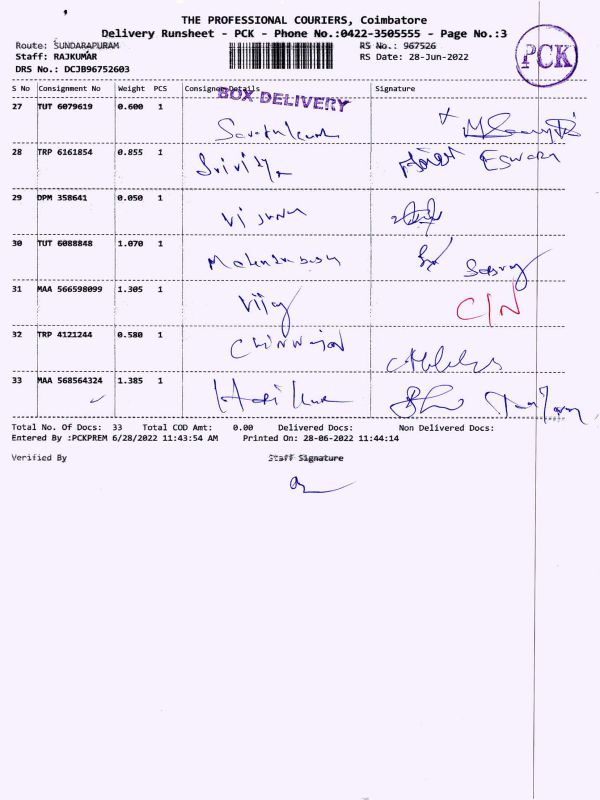 THE PROFESSIONAL COURIERS, Coimbatore
Delivery Runsheet - PCK - Phone No.:0422-3505555 - Page No.:3
Route: SUNDARAPURAM
RS No.: 967526
Staff: RAJKUMAR
RS Date: 28-Jun-2022
DRS No.: DCJB96752603
PCK
S No Consignment No Weight PCS Consignee Details Signature
BOX DELIVERY
27 TUT 6079619 0.600 1
28 TRP 6161854 0.855 1
Srividya Eswary
29 DPM 358641 0.050 1
30 TUT 6088848 1.070 1
31 MAA 566598099 1.305 1
Vijay C/N
32 TRP 4121244 0.580 1
33 MAA 568564324 1.385 1
Total No. Of Docs: 33 Total COD Amt: 0.00 Delivered Docs: Non Delivered Docs:
Entered By :PCKPREM 6/28/2022 11:43:54 AM Printed On: 28-06-2022 11:44:14
Verified By Staff Signature